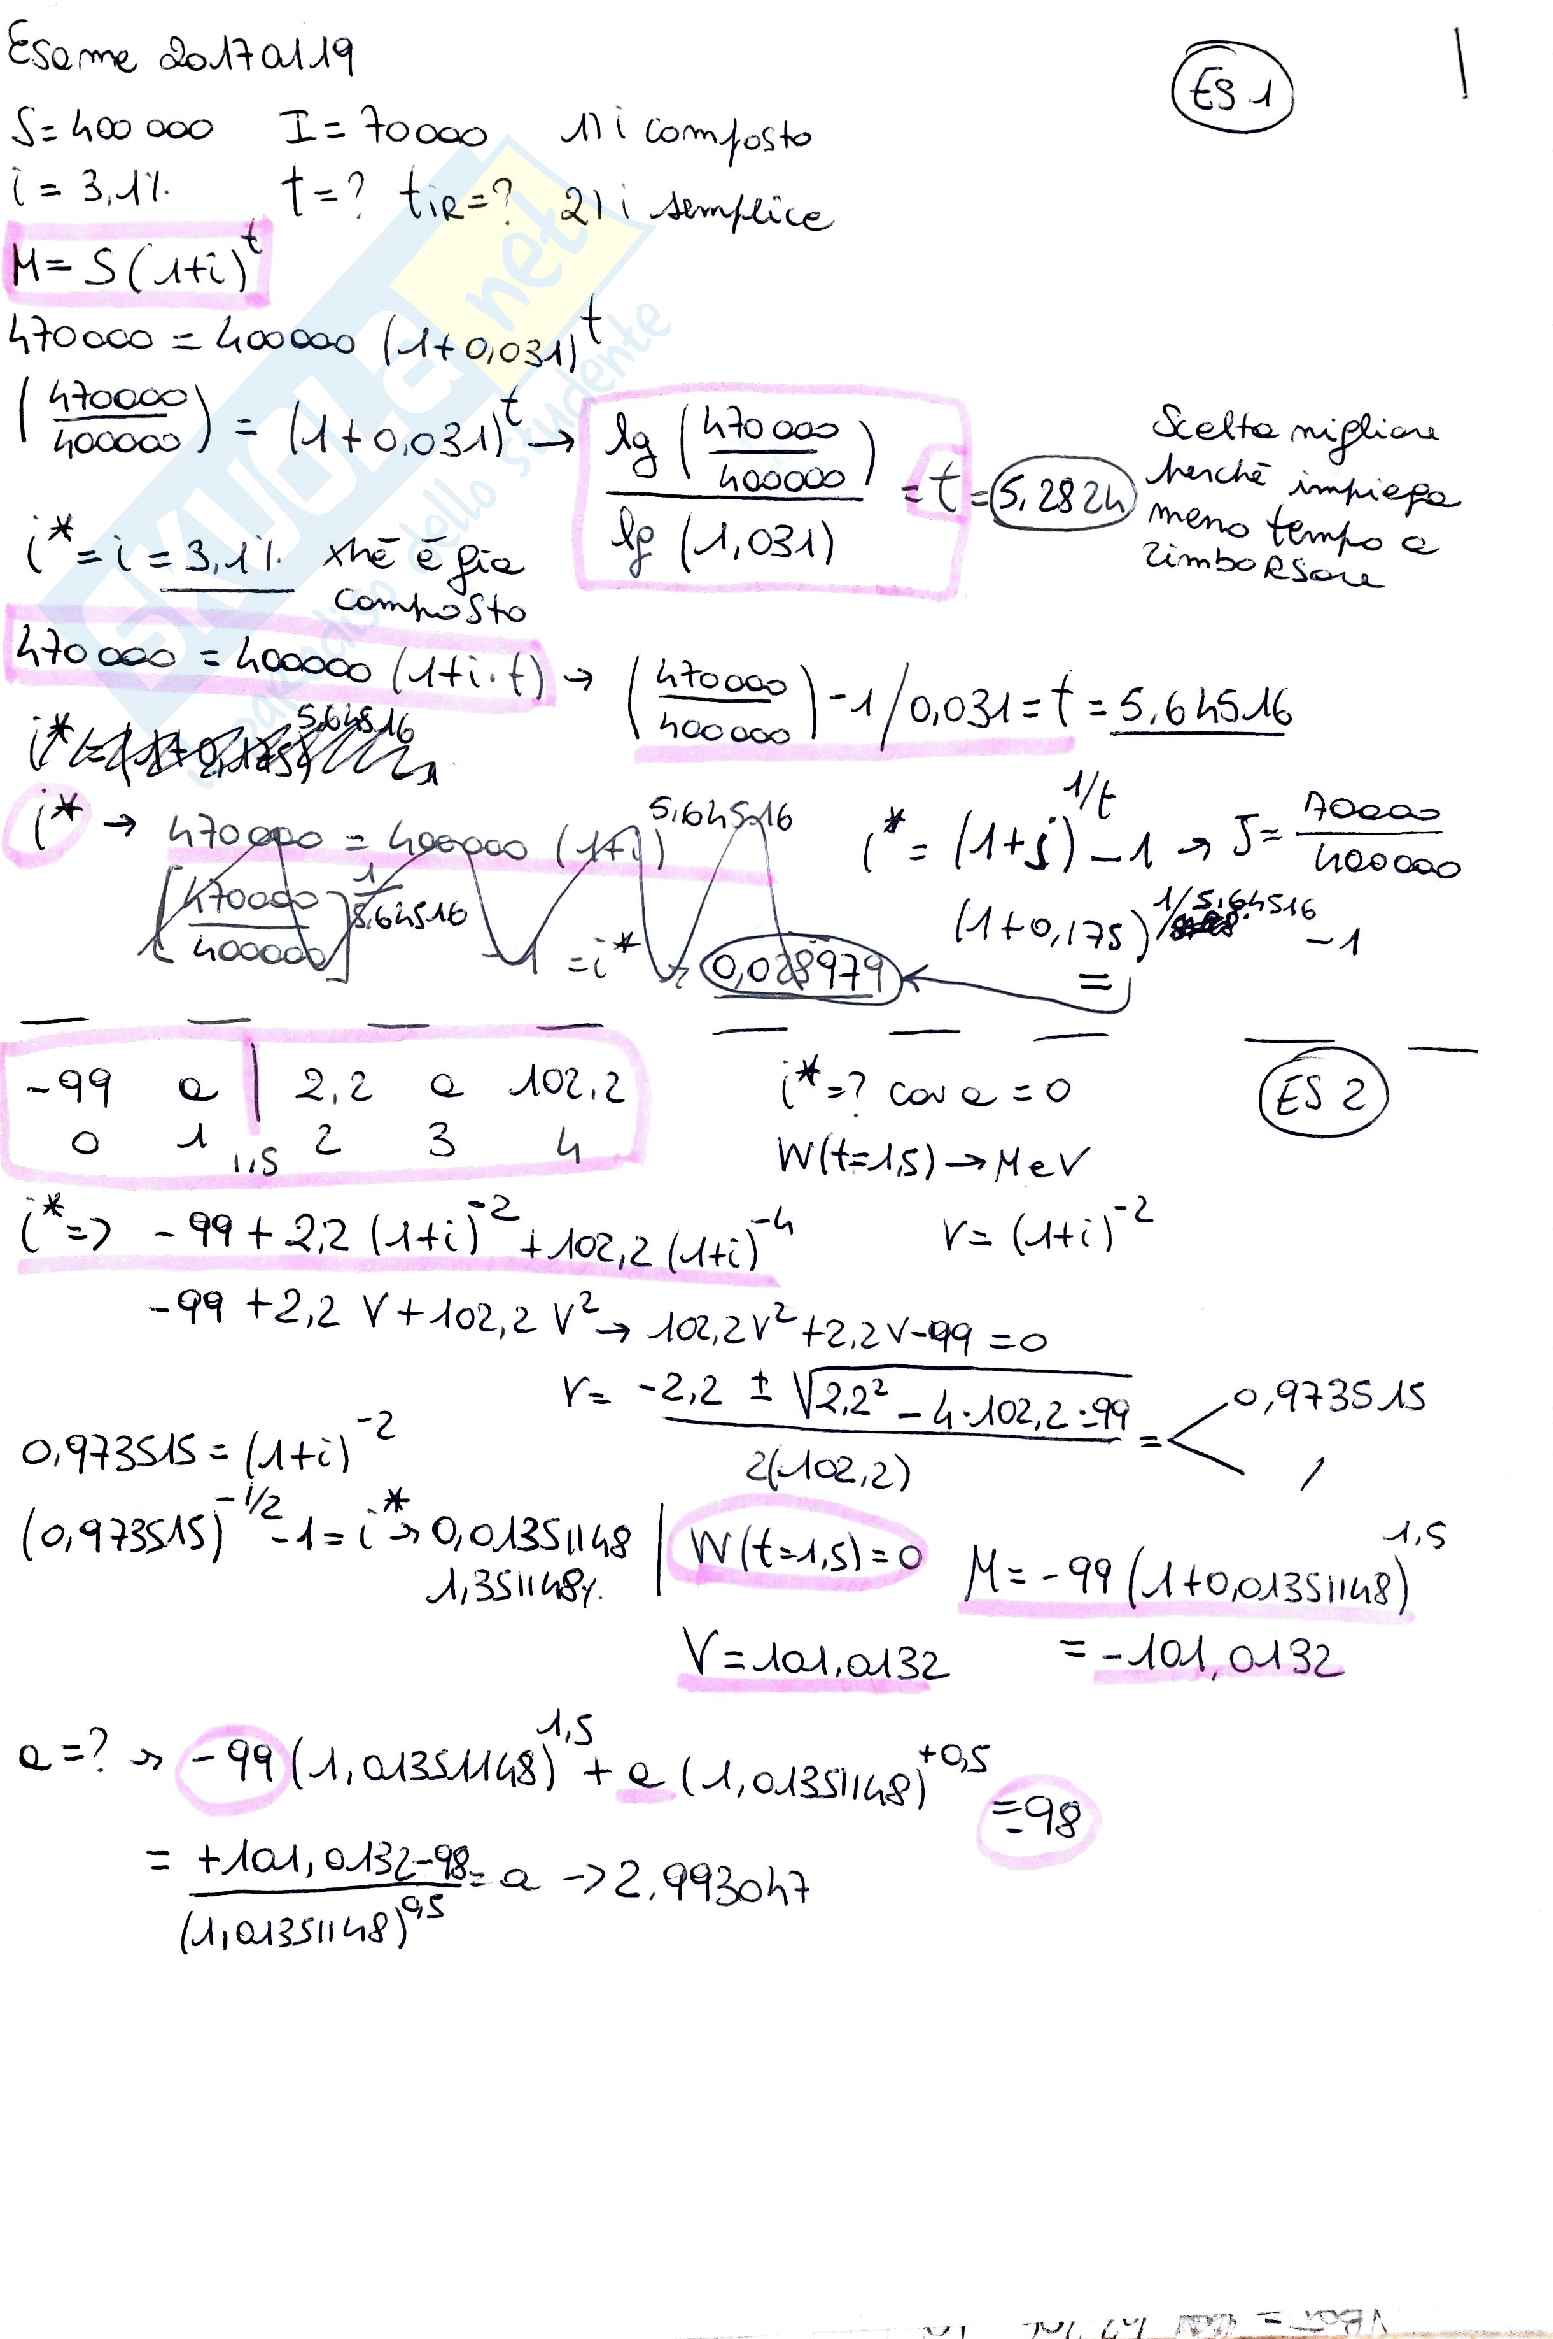 Esame 20170119
ES 1
S = 400 000 I = 70000 1) i composto
i = 3,1% t = ? tir = ? 2) i semplice
M = S (1+i)^t
470000 = 400000 (1+0,031)^t
(470000/400000) = (1+0,031)^t → lg (470000/400000) / lg (1,031) = t = 5,2824
Scelta migliore
perchè impiega
meno tempo a
rimborsare
i* = i = 3,1% xhè è già
composto
470 000 = 400000 (1+i·t) → (470000/400000) -1 / 0,031 = t = 5,64516
i* → 470000 = 400000 (1+i)^5,64516
i* = (1+j)^1/t -1 → J = 70000/400000
[470000/400000]^1/5,64516 -1 = i* = 0,028979
(1+0,175)^1/5,64516 -1
=
-99 a | 2,2 a 102,2
0 1 1,5 2 3 4
i* = ? con a = 0
ES 2
W(t=1,5) → M e V
i* => -99 + 2,2 (1+i)^-2 + 102,2 (1+i)^-4 V = (1+i)^-2
-99 + 2,2 V + 102,2 V² → 102,2V² + 2,2V - 99 = 0
V = -2,2 ± √2,2² - 4·102,2·-99 / 2(102,2) = 0,973515
/
0,973515 = (1+i)^-2
(0,973515)^-1/2 -1 = i* → 0,01351148
1,351148%
W(t=1,5) = 0 M = -99 (1+0,01351148)^1,5
V = 101,0132 = -101,0132
a = ? → -99 (1,01351148)^1,5 + a (1,01351148)^+0,5 = -98
= +101,0132-98 / (1,01351148)^0,5 = a → 2,993047
SKUOLA.net
il paradiso dello studente